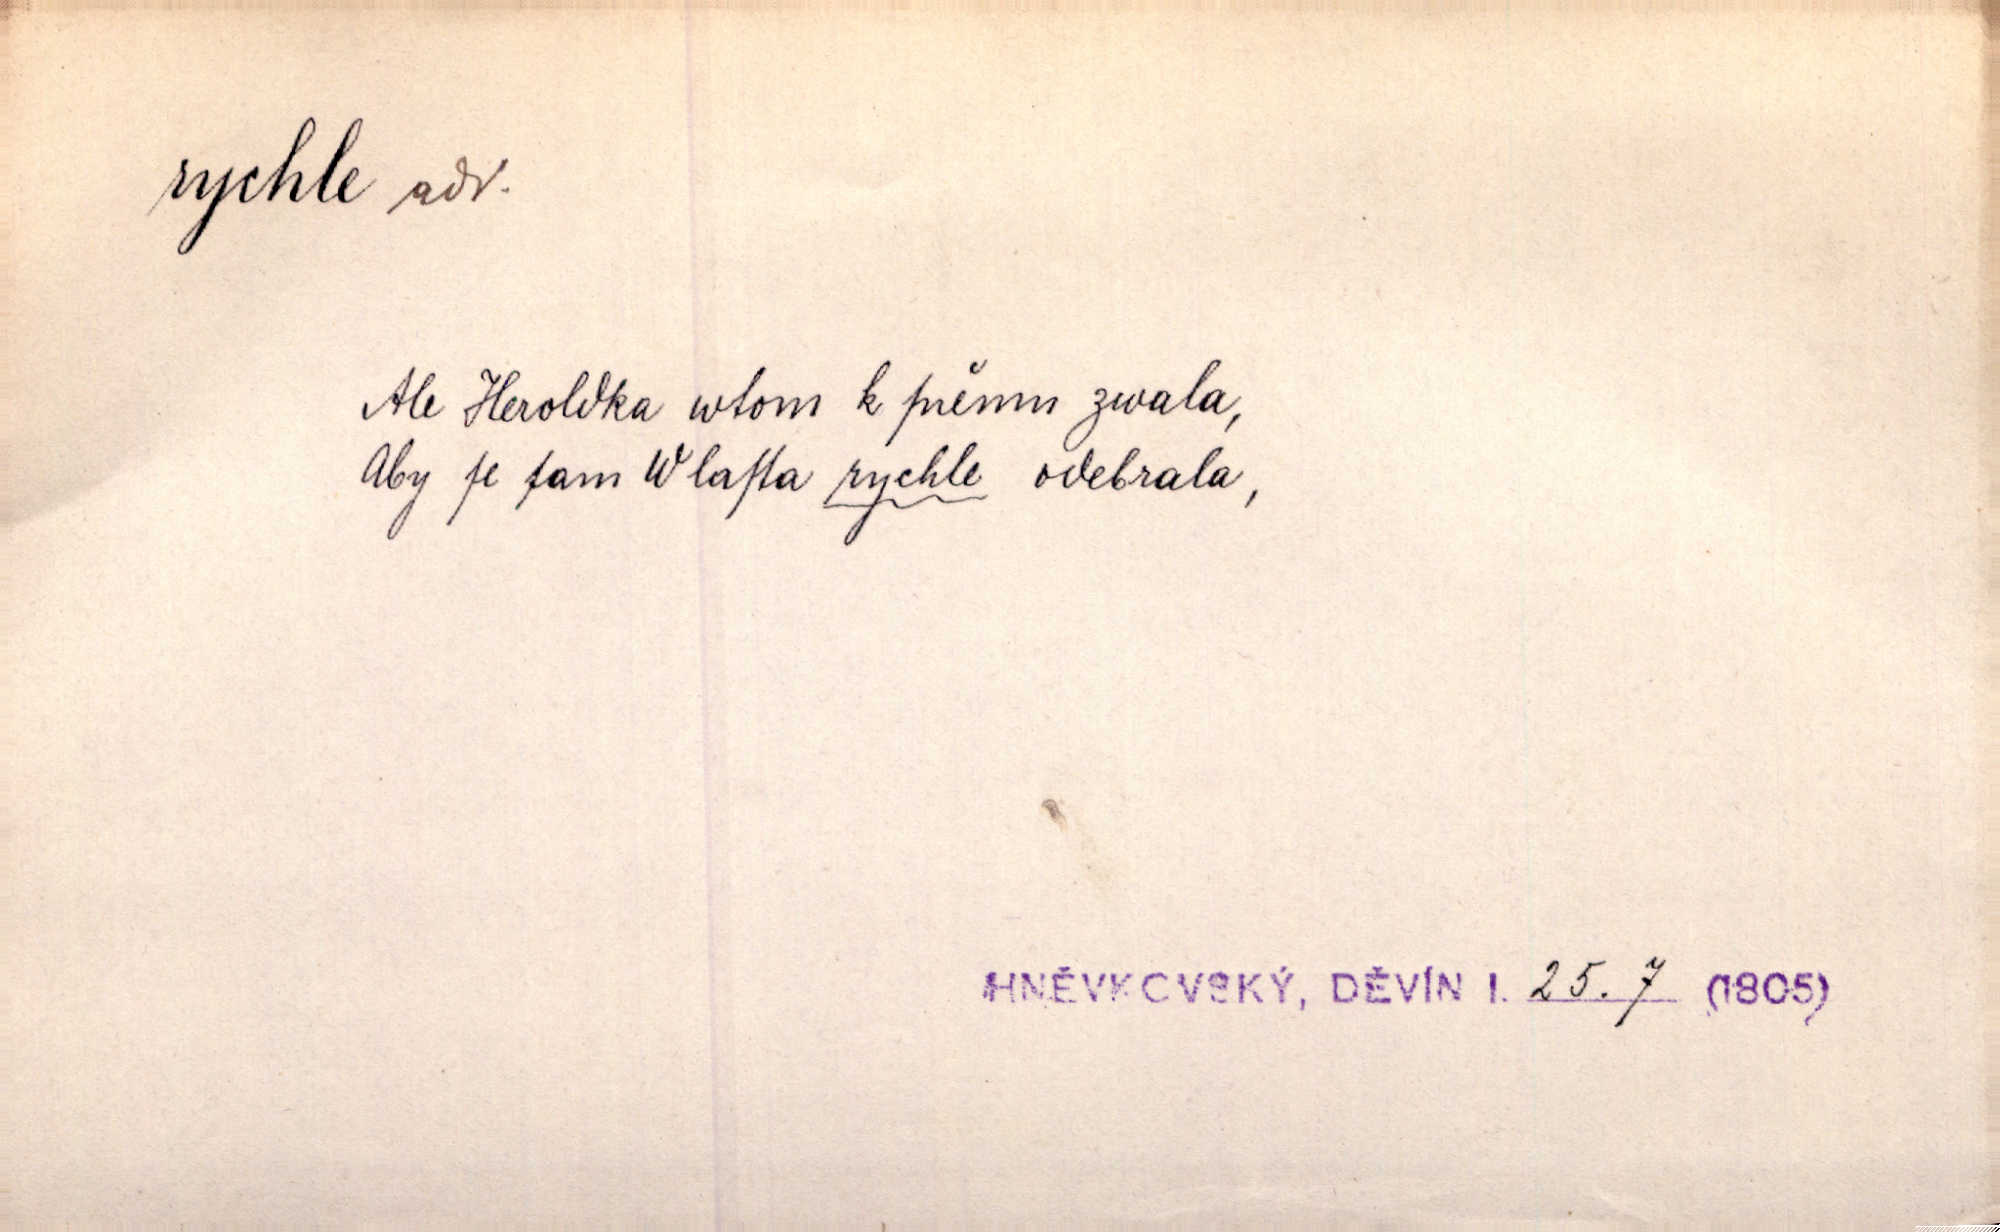 rychle adv.
Ale Heroldka wtom k ſněmu zwala,
Aby ſe tam Wlaſta rychle odebrala,
HNĚVKOVSKÝ, DĚVÍN I. 25.7 (1805)